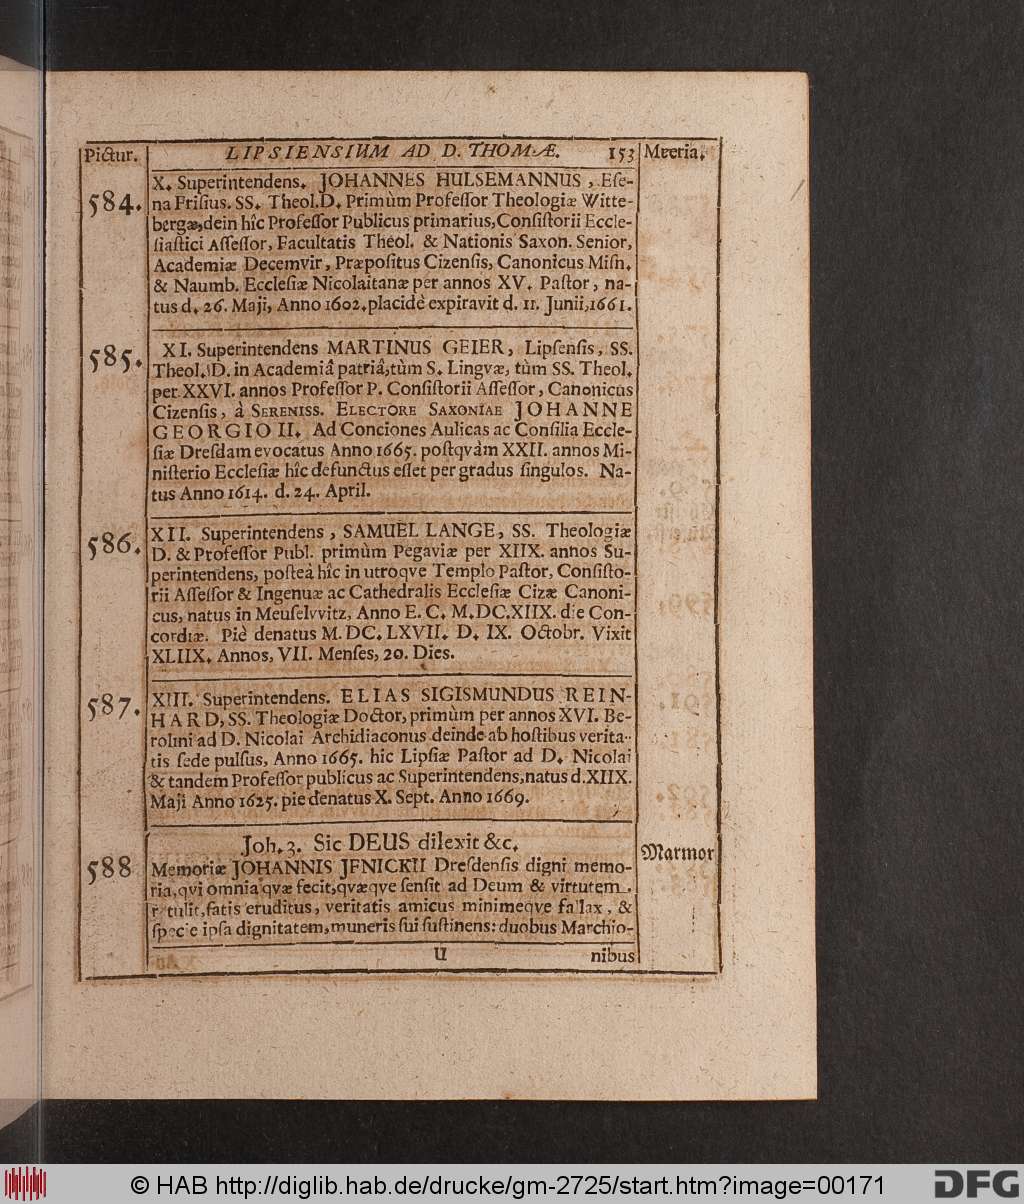 Pictur. LIPSIENSIUM AD D. THOMÆ. 153 Mteria.
584. X. Superintendens. JOHANNES HULSEMANNUS, Eſe-
na Friſius. SS. Theol. D. Primùm Profeſſor Theologiæ Witte-
bergæ, dein hîc Profeſſor Publicus primarius, Conſiſtorii Eccle-
ſiaſtici Aſſeſſor, Facultatis Theol. & Nationis Saxon. Senior,
Academiæ Decemvir, Præpoſitus Cizenſis, Canonicus Miſn.
& Naumb. Eccleſiæ Nicolaitanæ per annos XV. Paſtor, na-
tus d. 26. Maji, Anno 1602. placidè expiravit d. 11. Junii, 1661.
585. XI. Superintendens MARTINUS GEIER, Lipſenſis, SS.
Theol. D. in Academiâ patriâ, tùm S. Lingvæ, tùm SS. Theol.
per XXVI. annos Profeſſor P. Conſiſtorii Aſſeſſor, Canonicus
Cizenſis, à SERENISS. ELECTORE SAXONIAE JOHANNE
GEORGIO II. Ad Conciones Aulicas ac Conſilia Eccle-
ſiæ Dreſdam evocatus Anno 1665. poſtqvàm XXII. annos Mi-
niſterio Eccleſiæ hîc defunctus eſſet per gradus ſingulos. Na-
tus Anno 1614. d. 24. April.
586. XII. Superintendens, SAMUEL LANGE, SS. Theologiæ
D. & Profeſſor Publ. primùm Pegaviæ per XIIX. annos Su-
perintendens, poſteà hîc in utroqve Templo Paſtor, Conſiſto-
rii Aſſeſſor & Ingenuæ ac Cathedralis Eccleſiæ Cizæ Canoni-
cus, natus in Meuſelvvitz, Anno E. C. M.DC.XIIX. die Con-
cordiæ. Piè denatus M. DC. LXVII. D. IX. Octobr. Vixit
XLIIX. Annos, VII. Menſes, 20. Dies.
587. XIII. Superintendens. ELIAS SIGISMUNDUS REIN-
HARD, SS. Theologiæ Doctor, primùm per annos XVI. Be-
rolini ad D. Nicolai Archidiaconus deinde ab hoſtibus verita-
tis ſede pulſus, Anno 1665. hic Lipſiæ Paſtor ad D. Nicolai
& tandem Profeſſor publicus ac Superintendens, natus d. XIIX.
Maji Anno 1625. pie denatus X. Sept. Anno 1669.
Joh. 3. Sic DEUS dilexit &c.
588 Memoriæ JOHANNIS JENICKII Dreſdenſis digni memo- Marmor
ria, qvi omnia qvæ fecit, qvæqve ſenſit ad Deum & virtutem
r tulit, ſatis eruditus, veritatis amicus minimeqve fallax, &
ſpecie ipſa dignitatem, muneris ſui ſuſtinens: duobus Marchio-
U nibus
© HAB http://diglib.hab.de/drucke/gm-2725/start.htm?image=00171
DFG